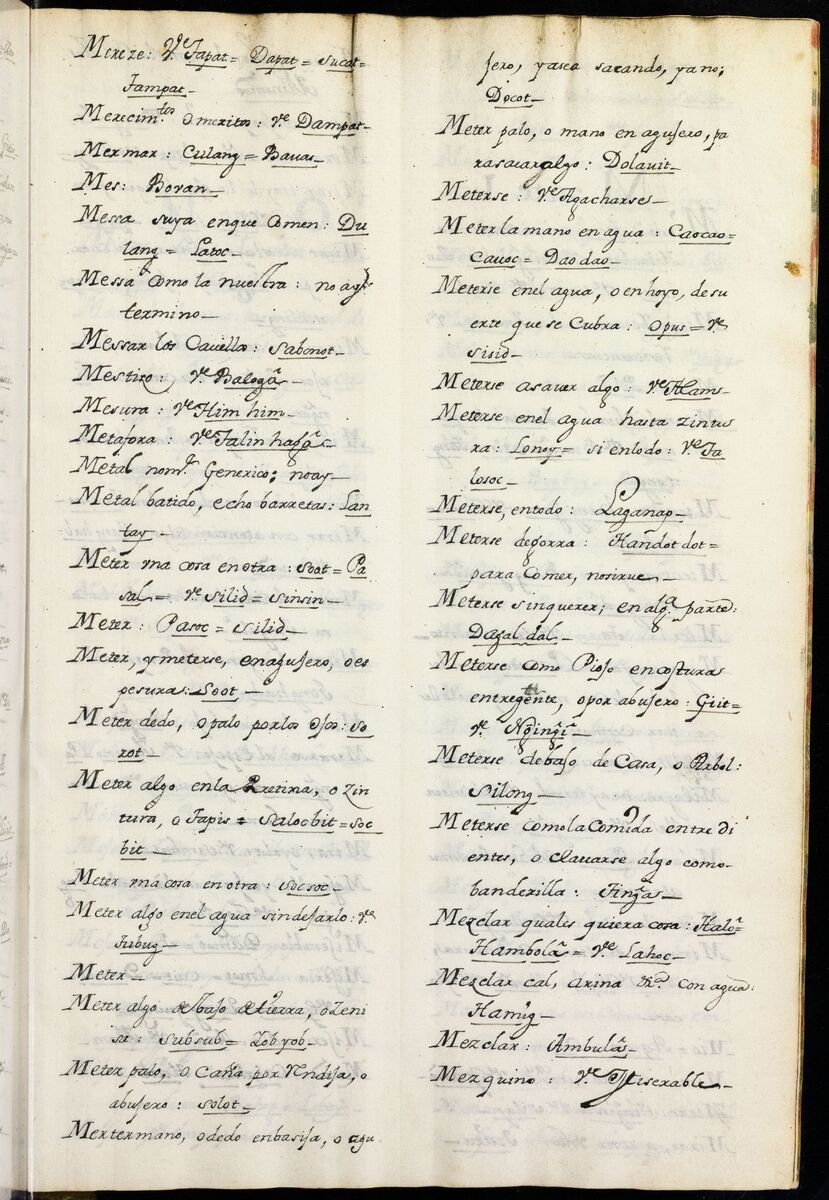 Mereze: V.e Tapat = Dapat = sucat =
Tampat_
Merecim.tos o meritos: v.e Dampat_
Mermar: Culang = Bauas_
Mes: Bovan_
Messa suya enque Comen: Du
lang = Latoc_
Messa Como la nuestra: no ay
termino_
Messar los Cavello: sabonot_
Mestiso: V.e Balogã_
Mesura: v.e Him him_
Metafora: v.e Talin hagã_
Metal nom.e Generico; no ay_
Metal batido, echo barretas: Lan
tay_
Meter vna cosa en otra: soot = Pa
sal = v.e silid = sinsin_
Meter: Pasoc = silid_
Meter, y meterse, enagujero, o es
pesuras: Loot_
Meter dedo, o palo por los ojos: so
rot_
Meter algo enla Pretina, o zin
tura, o Tapis = saloc bit = soc
bit_
Meter vna cosa en otra: socsoc_
Meter algo enel agua sin dejarlo: v.e
Tubug_
Meter_
Meter algo debajo de tierra, o zeni
sa: subsub = Zobyob_
Meter palo, o Caña por Rendija, o
abujero: solot_
Merter mano, o dedo en basija, o agu
jero, ya sea sacando, ya no;
Docot_
Meter palo, o mano en agujero, pa
ra sacar algo: Dolauit_
Meterse: v.e Agacharse_
Meter la mano en agua: Caocao =
Cauoc = Dao dao_
Meterse enel agua, o en hoyo, de su
erte que se Cubra: opus = v.e
sisid_
Meterse a saver algo: v.e Alams_
Meterse enel agua hasta zintu
ra: Lonoy = si en lodo: v.e Ta
losoc_
Meterse, en todo: Laganap_
Meterse de gorra: Handot dot =
para Comer, no sirve_
Meterse sin querer; en alg.a parte:
Dagal dal_
Meterse como Piojo en costuras
entre gente, o por abujero: Giit =
v.e Ngingi_
Meterse debajo de Casa, o Arbol:
silong_
Meterse como la Comida entre di
entes, o clavarse algo como
banderilla: Tingãs_
Mezclar quales quiera cosa: Halõ =
Hambolã = v.e Lahoc_
Mezclar cal, arina &.a con agua:
Hamig_
Mezclar: Ambulãs_
Mezquino: v.e Miserable_